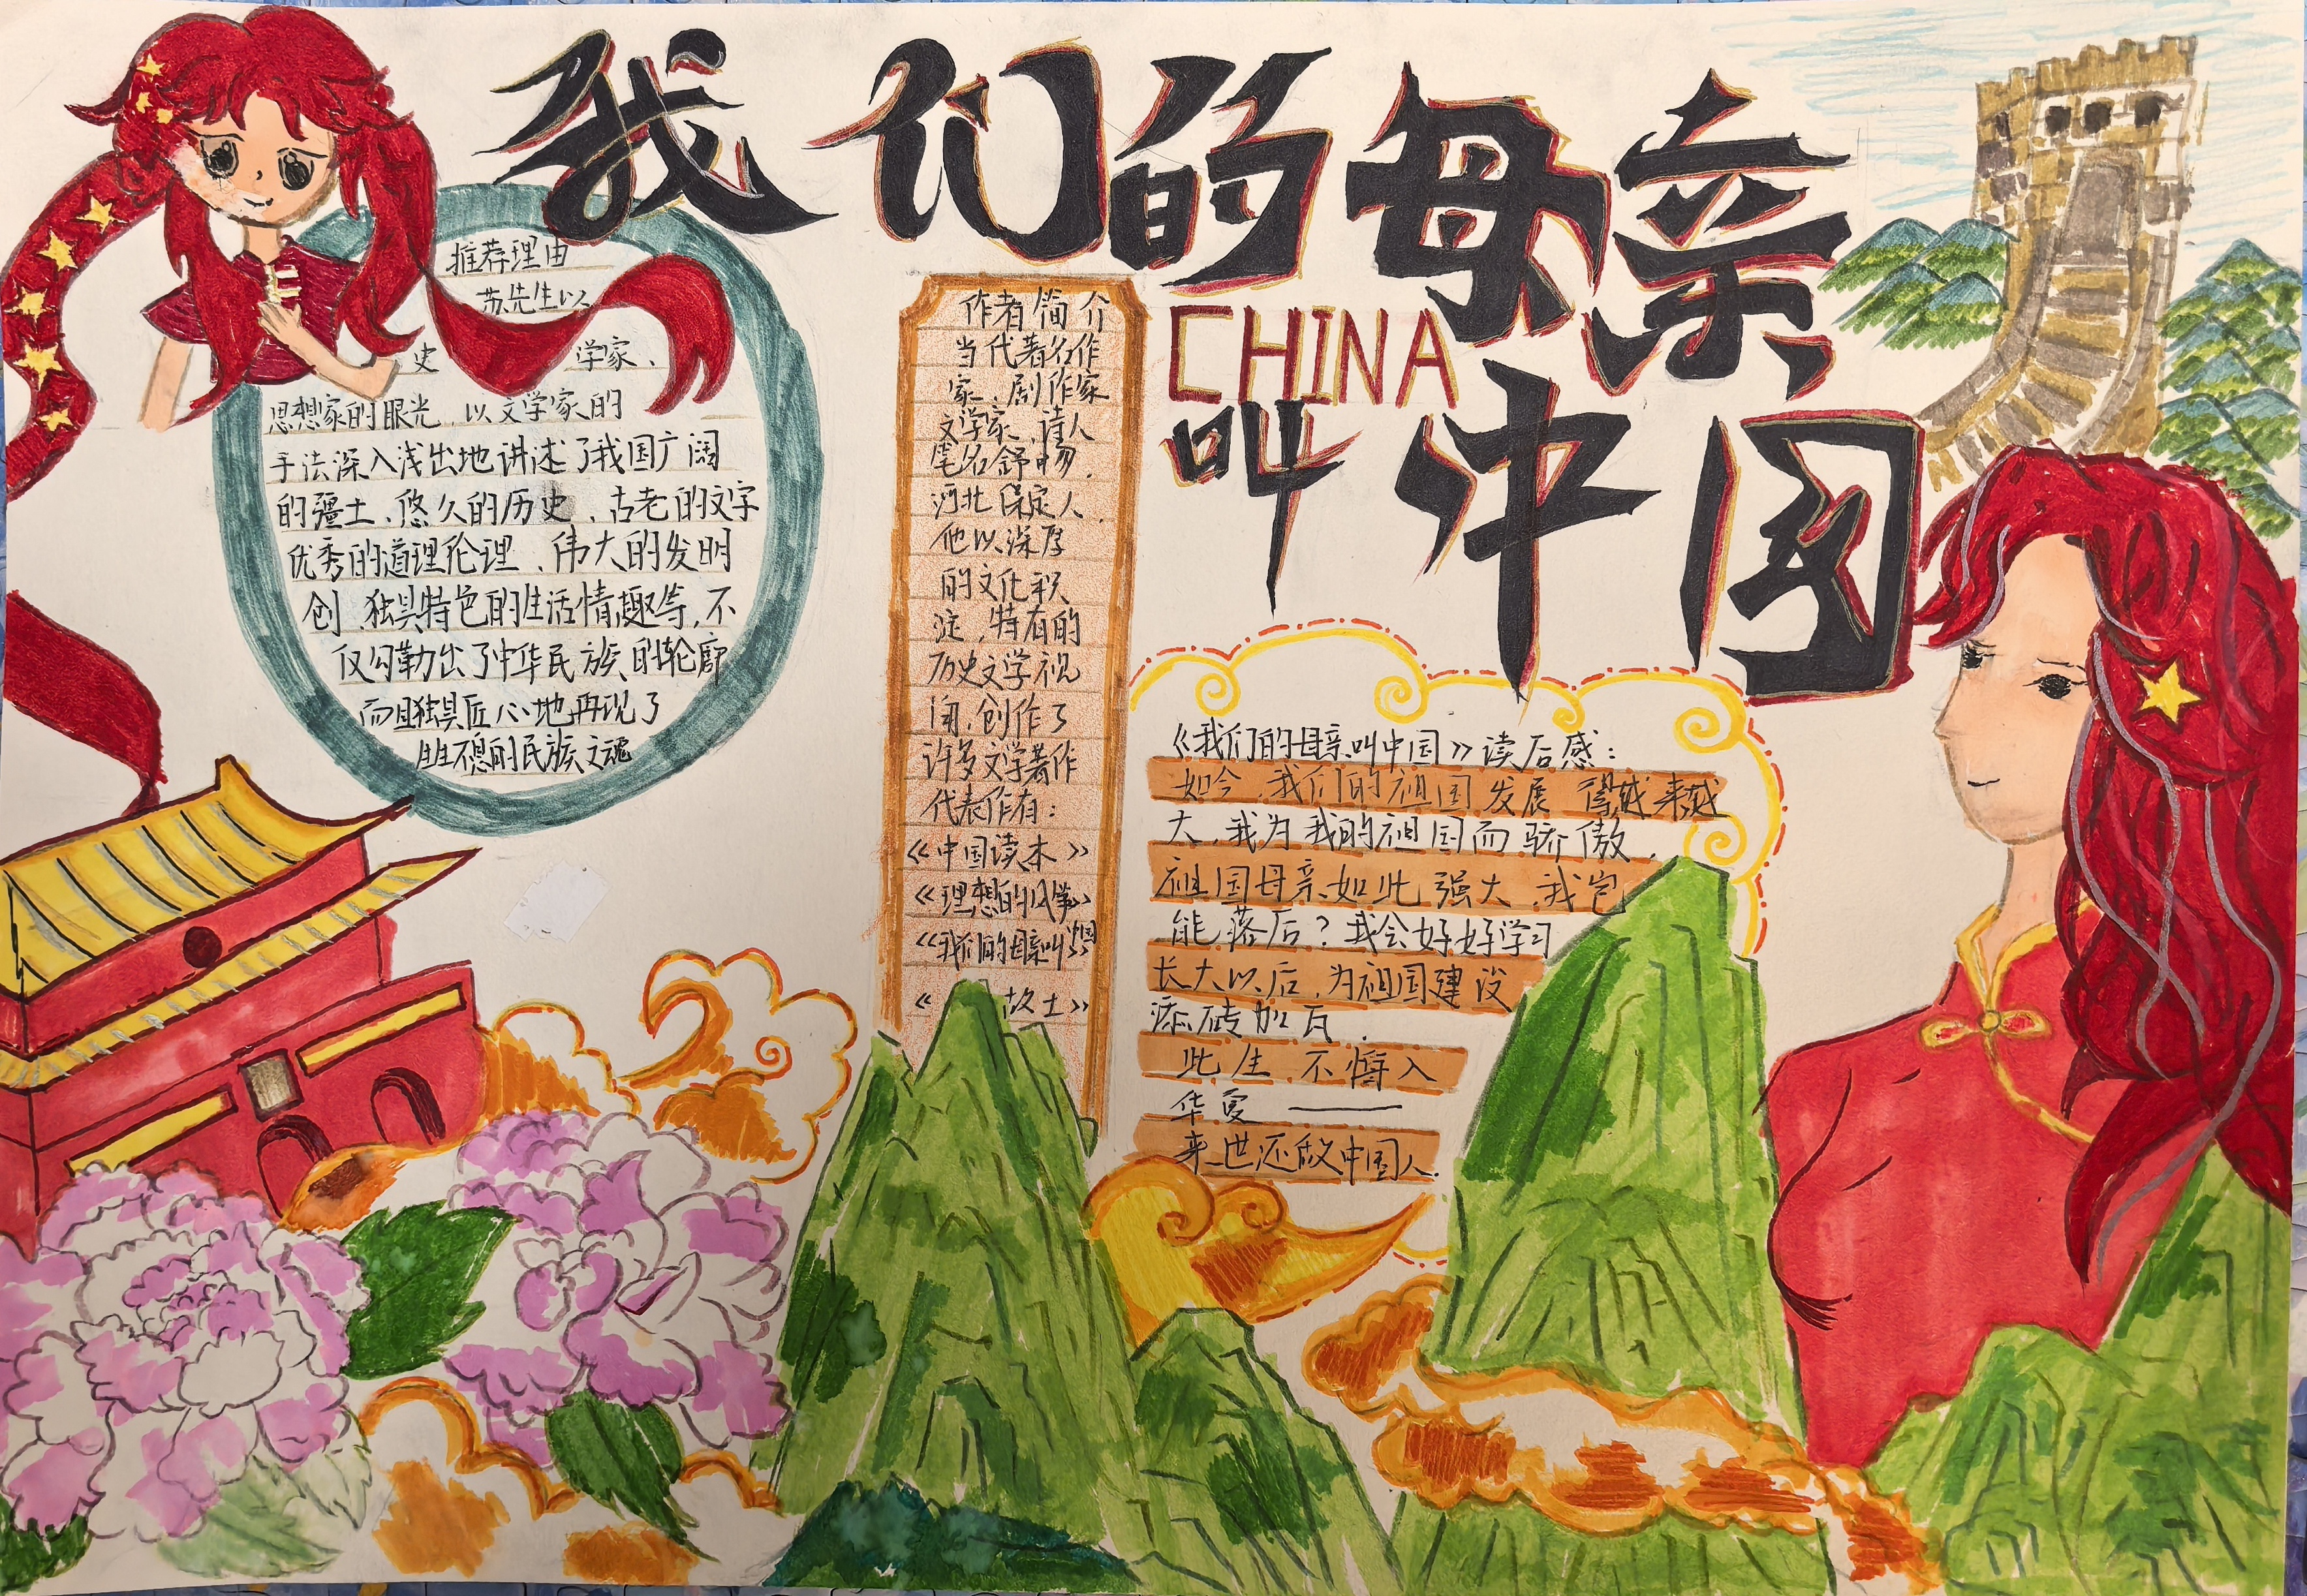 我们的母亲
CHINA
叫中国
推荐理由
苏先生以
史 学家、
思想家的眼光,以文学家的
手法深入浅出地讲述了我国广阔
的疆土、悠久的历史、古老的文字
优秀的道理伦理、伟大的发明
创、独具特色的生活情趣等,不
仅勾勒出了中华民族的轮廓
而且独具匠心地再现了
生生不息的民族之魂
作者简介
当代著名作
家、剧作家
文学家、诗人
笔名舒肠.
河北保定人.
他以深厚
的文化积
淀,特有的
历史文学视
角,创作了
许多文学著作
代表作有:
《中国读本》
《理想的风筝》
《我们的母亲叫中国》
《 故土》
《我们的母亲叫中国》读后感:
如今,我们的祖国发展得越来越
大,我为我的祖国而骄傲.
祖国母亲如此强大,我岂
能落后?我会好好学习
长大以后,为祖国建设
添砖加瓦.
此生不悔入
华夏——
来世还做中国人.